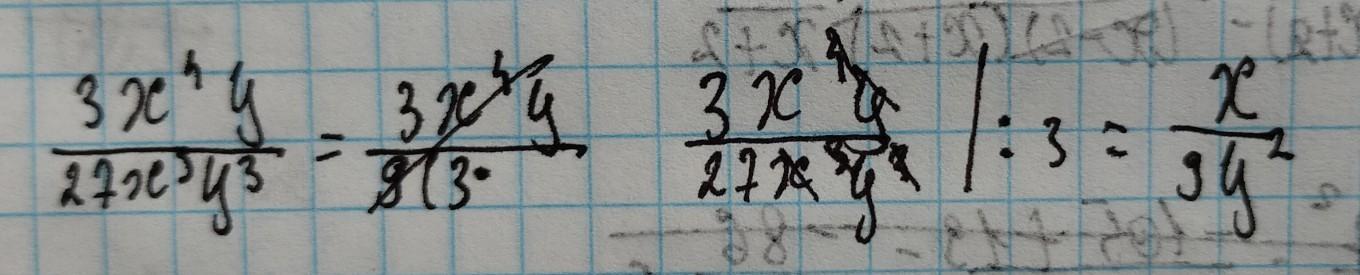 3x⁴y/27x³y³ = 3x⁴y/9(3· 3x⁴y/27x³y³ | : 3 = x/9y²